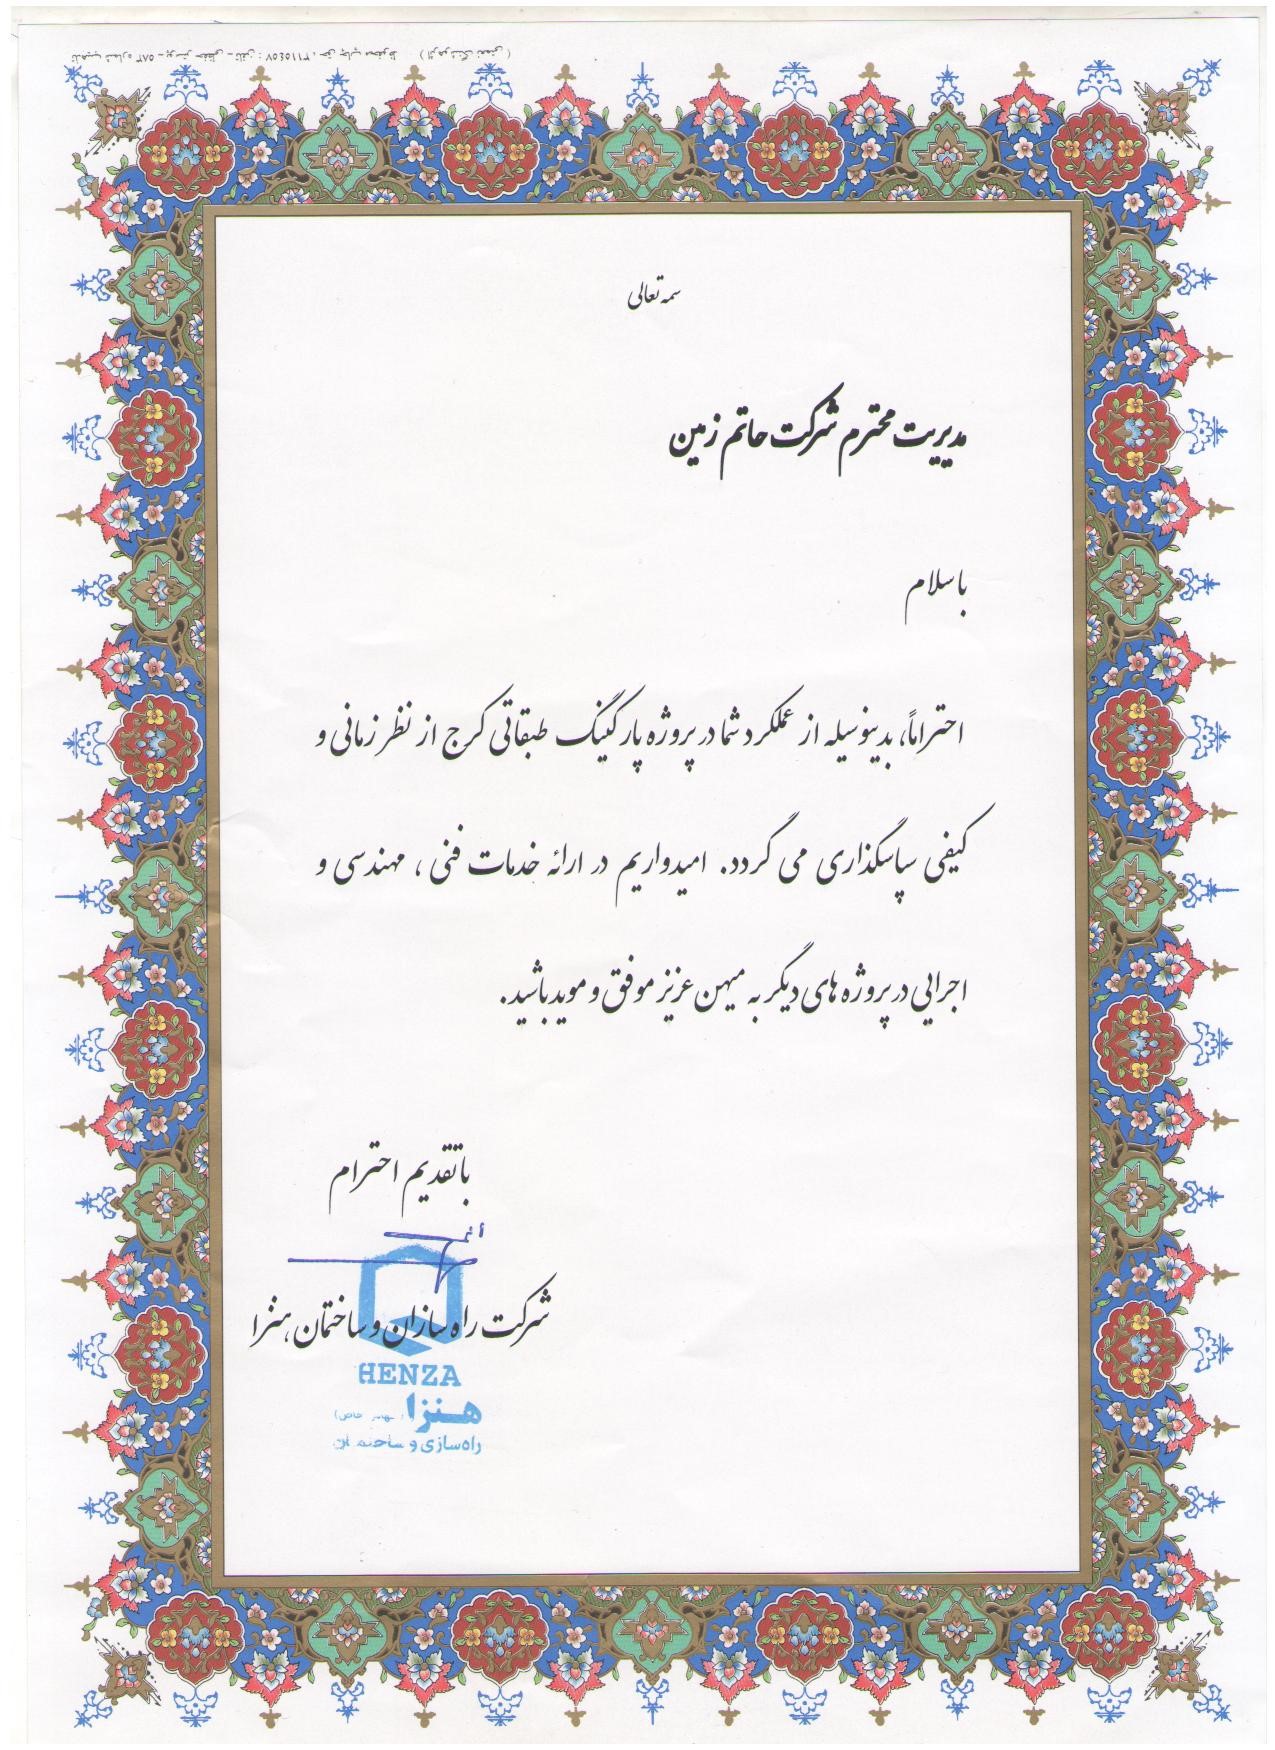 بسمه تعالی
مدیریت محترم شرکت حاتم زمین
با سلام
احتراماً، بدینوسیله از عملکرد شما در پروژه پارکینگ طبقاتی کرج از نظر زمانی و
کیفی سپاسگذاری می گردد. امیدواریم در ارائه خدمات فنی ، مهندسی و
اجرایی در پروژه های دیگر به میهن عزیز موفق و موید باشید.
با تقدیم احترام
شرکت راه سازان و ساختمان هنزا
HENZA
هنزا
راه‌سازی و ساختمان